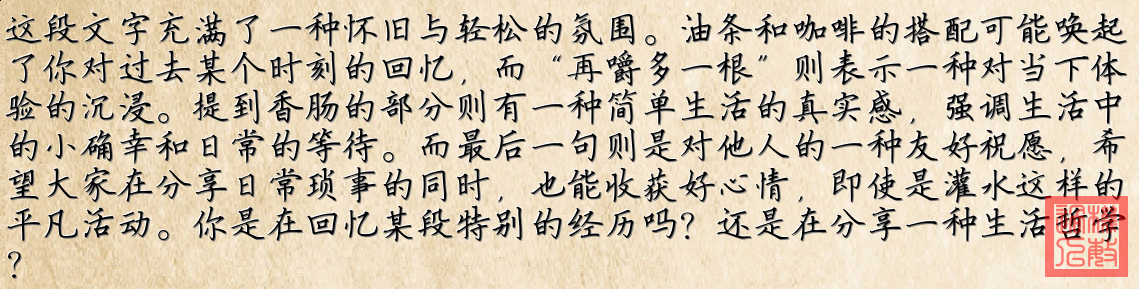 这段文字充满了一种怀旧与轻松的氛围。油条和咖啡的搭配可能唤起
了你对过去某个时刻的回忆，而“再嚼多一根”则表示一种对当下体
验的沉浸。提到香肠的部分则有一种简单生活的真实感，强调生活中
的小确幸和日常的等待。而最后一句则是对他人的一种友好祝愿，希
望大家在分享日常琐事的同时，也能收获好心情，即使是灌水这样的
平凡活动。你是在回忆某段特别的经历吗？还是在分享一种生活哲学
？